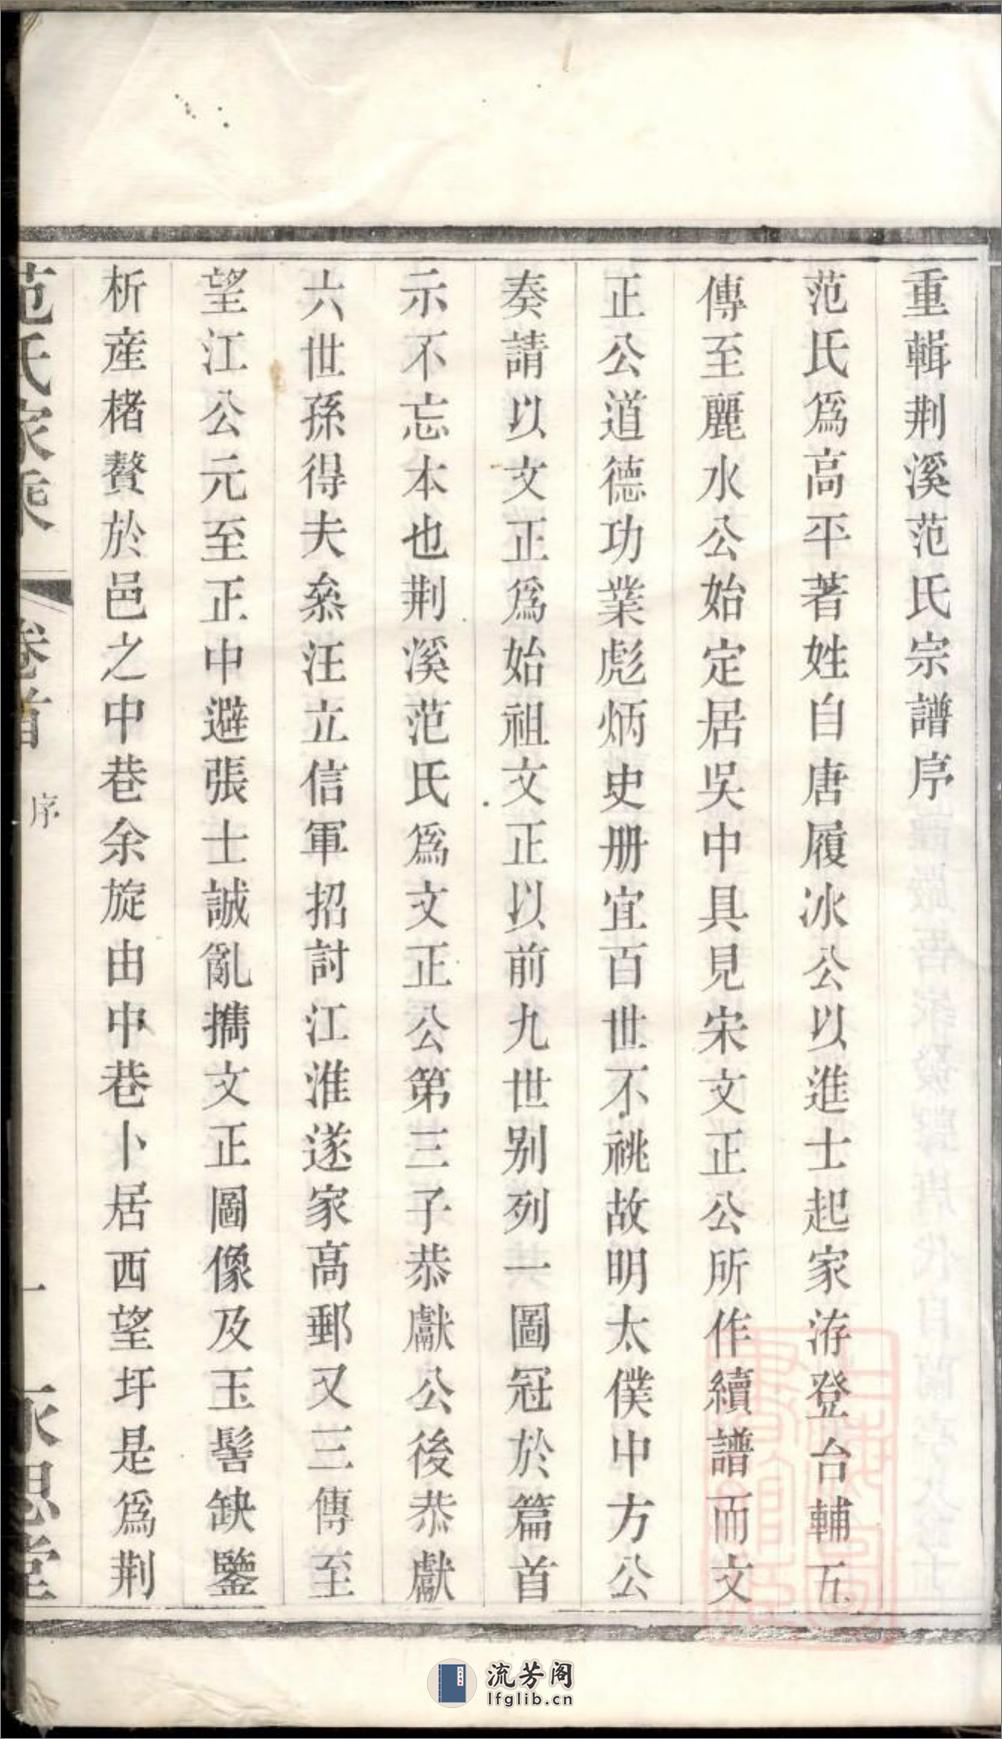 重輯荆溪范氏宗譜序
范氏爲高平著姓自唐履冰公以進士起家洊登台輔五
傳至麗水公始定居吳中具見宋文正公所作續譜而文
正公道德功業彪炳史册宜百世不祧故明太僕中方公
奏請以文正爲始祖文正以前九世别列一圖冠於篇首
示不忘本也荆溪范氏爲文正公第三子恭獻公後恭獻
六世孫得夫叅汪立信軍招討江淮遂家高郵又三傳至
望江公元至正中避張士誠亂携文正圖像及玉髻缺鑒
析産楮贅於邑之中巷余旋由中巷卜居西望圩是爲荆
范氏家乘 卷首 序 一 永思堂
流芳阁
lfglib.cn